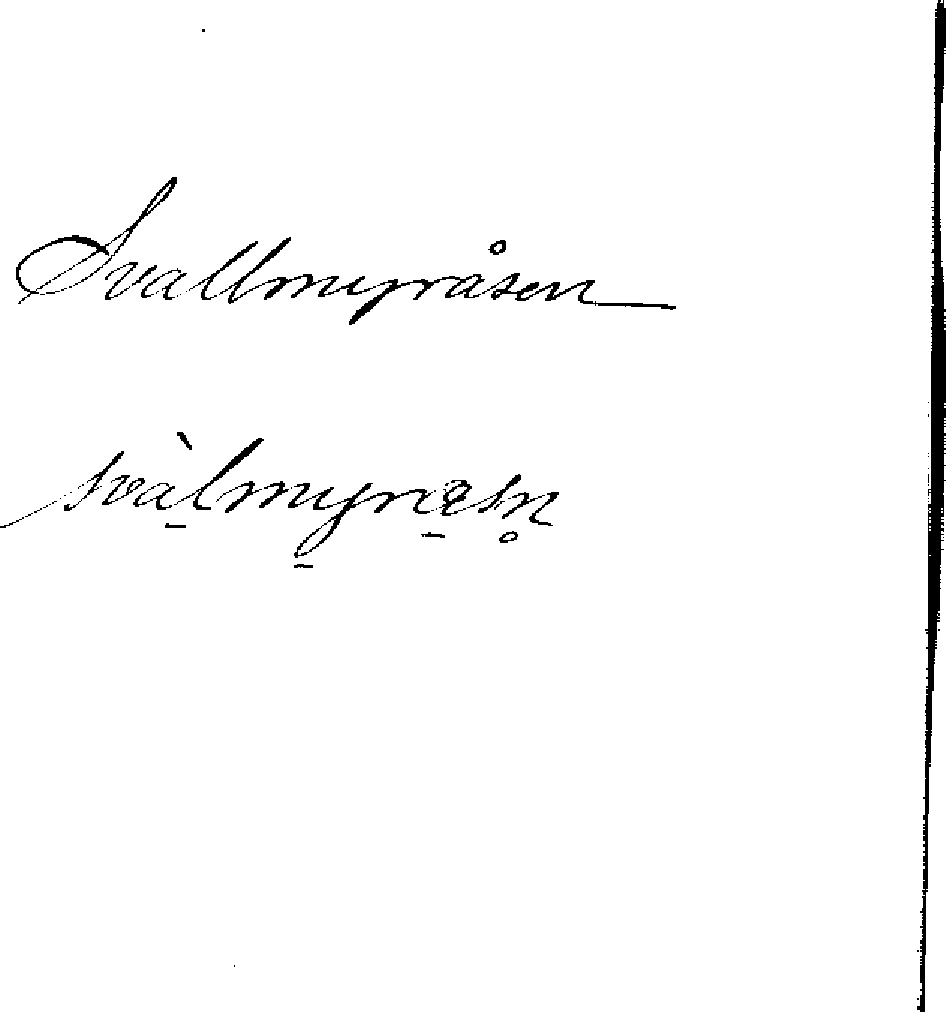 Svallmyråsen
svàl̠myræsn̥